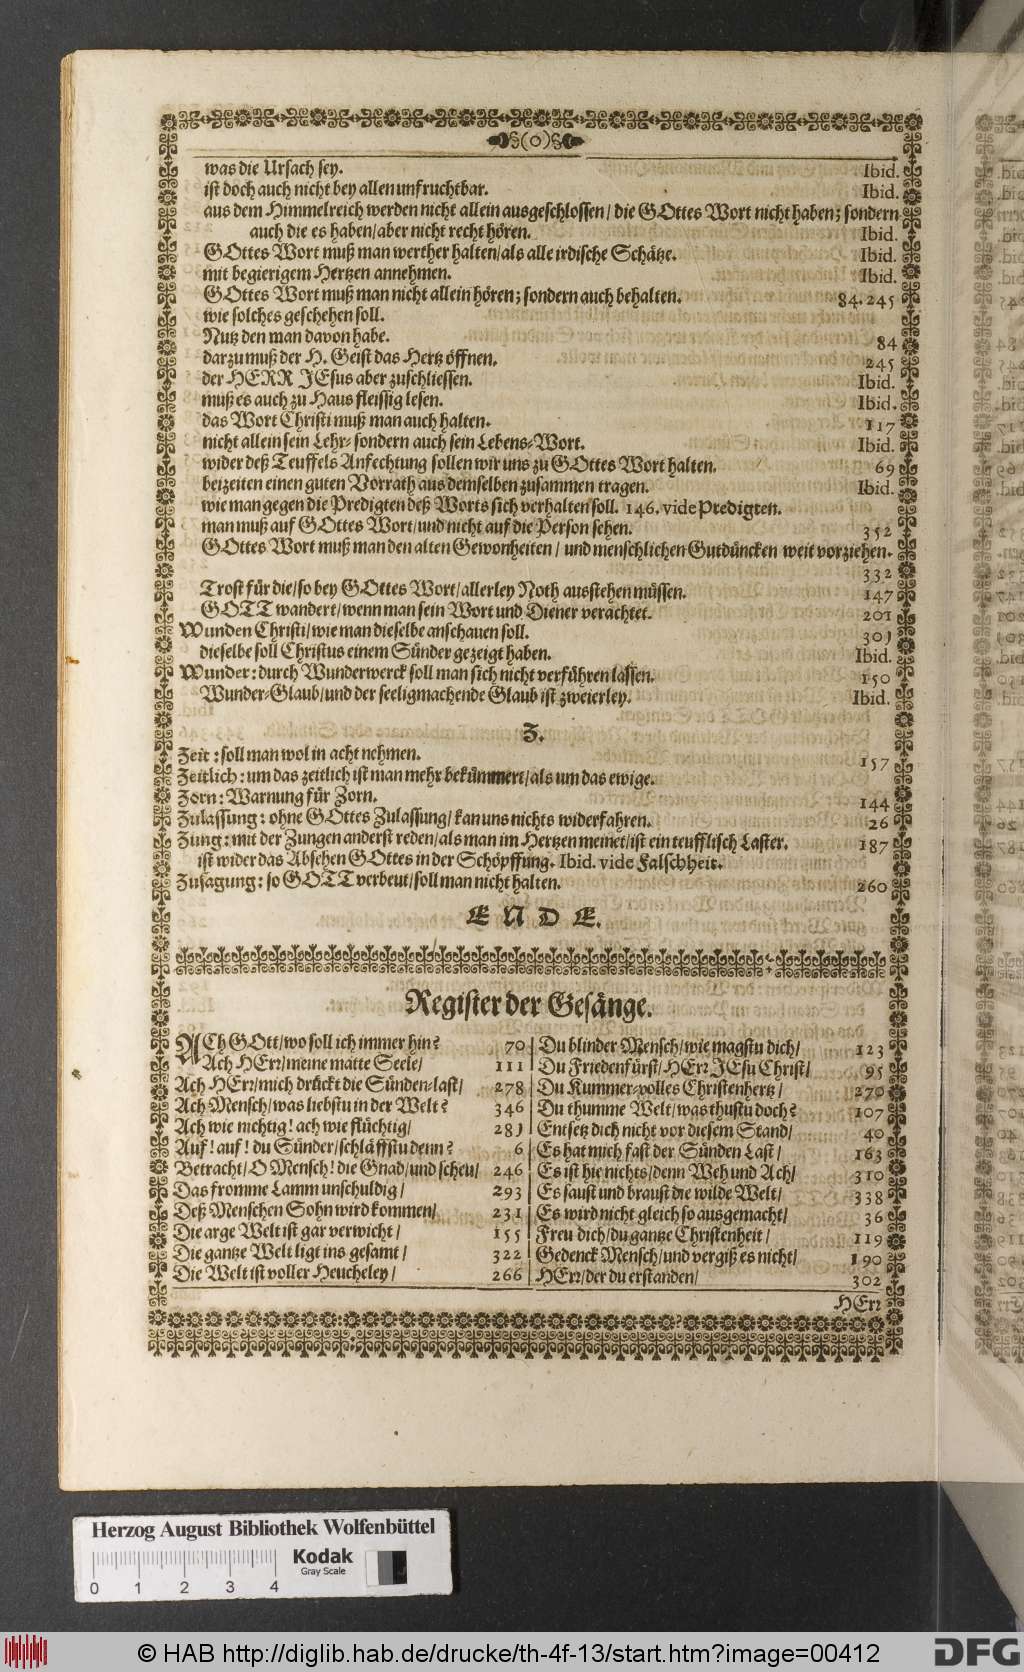 (o)
was die Ursach sey. Ibid.
ist doch auch nicht bey allen unfruchtbar. Ibid.
aus dem Himmelreich werden nicht allein ausgeschlossen / die GOttes Wort nicht haben; sondern
auch die es haben/aber nicht recht hören. Ibid.
GOttes Wort muß man werther halten/als alle irdische Schätze. Ibid.
mit begierigem Hertzen annehmen. Ibid.
GOttes Wort muß man nicht allein hören; sondern auch behalten. 84. 245
wie solches geschehen soll.
Nutz den man davon habe. 84
darzu muß der H. Geist das Hertz öffnen. 245
der HERR JEsus aber zuschliessen. Ibid.
muß es auch zu Haus fleissig lesen. Ibid.
das Wort Christi muß man auch halten. 117
nicht allein sein Lehr- sondern auch sein Lebens-Wort. Ibid.
wider deß Teuffels Anfechtung sollen wir uns zu GOttes Wort halten. 69
beizeiten einen guten Vorrath aus demselben zusammen tragen. Ibid.
wie man gegen die Predigten deß Worts sich verhalten soll. 146. vide Predigten.
man muß auf GOttes Wort/und nicht auf die Person sehen. 352
GOttes Wort muß man den alten Gewonheiten / und menschlichen Gutdüncken weit vorziehen.
332
Trost für die/so bey GOttes Wort/allerley Noth ausstehen müssen. 147
GOTT wandert/wenn man sein Wort und Diener verachtet. 201
Wunden Christi/wie man dieselbe anschauen soll. 301
dieselbe soll Christus einem Sünder gezeigt haben. Ibid.
Wunder: durch Wunderwerck soll man sich nicht verführen lassen. 150
Wunder-Glaub/und der seeligmachende Glaub ist zweierley. Ibid.
Z.
Zeit: soll man wol in acht nehmen. 157
Zeitlich: um das zeitlich ist man mehr bekümmert/als um das ewige.
Zorn: Warnung für Zorn. 144
Zulassung: ohne GOttes Zulassung/kan uns nichts widerfahren. 26
Zung: mit der Zungen anderst reden/als man im Hertzen meinet/ist ein teufflisch Laster. 187
ist wider das Absehen GOttes in der Schöpffung. Ibid. vide Falschheit.
Zusagung: so GOTT verbeut/soll man nicht halten. 260
ENDE.
Register der Gesänge.
ACh GOtt/wo soll ich immer hin? 70
Ach HErr/meine matte Seele/ 111
Ach HErr/mich drückt die Sünden-last/ 278
Ach Mensch/was liebstu in der Welt? 346
Ach wie nichtig! ach wie flüchtig/ 281
Auf! auf! du Sünder/schläffstu denn? 6
Betracht/O Mensch! die Gnad/und scheu/ 246
Das fromme Lamm unschuldig/ 293
Deß Menschen Sohn wird kommen/ 231
Die arge Welt ist gar verwicht/ 155
Die gantze Welt ligt ins gesamt/ 322
Die Welt ist voller Heucheley/ 266
Du blinder Mensch/wie magstu dich/ 123
Du Friedenfürst/HErr JEsu Christ/ 95
Du Kummer-volles Christenhertz/ 270
Du thumme Welt/was thustu doch? 107
Entsetz dich nicht vor diesem Stand/ 40
Es hat mich fast der Sünden Last/ 163
Es ist hie nichts/denn Weh und Ach/ 310
Es saust und braust die wilde Welt/ 338
Es wird nicht gleich so ausgemacht/ 36
Freu dich/du gantze Christenheit/ 119
Gedenck Mensch/und vergiß es nicht/ 190
HErr/der du erstanden/ 302
HErr
Herzog August Bibliothek Wolfenbüttel
0 1 2 3 4
Kodak
Gray Scale
© HAB http://diglib.hab.de/drucke/th-4f-13/start.htm?image=00412
DFG